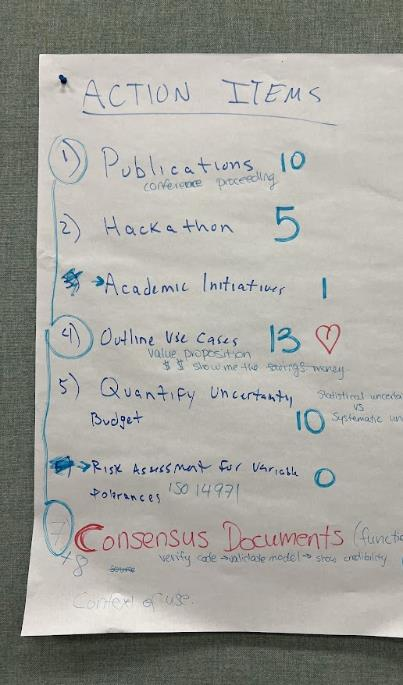 ACTION ITEMS
1) Publications 10
conference proceeding
2) Hackathon 5
→Academic Initiatives 1
4) Outline Use Cases 13
value proposition
$ $ show me the savings money
5) Quantify Uncertainty
Statistical uncerta
vs
Systematic un
Budget 10
→Risk Assessment for Variable
Tolerances ISO 14971 0
7 Consensus Documents (functi
verify code → validate model → show credibility
+8
Context of use.